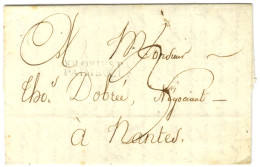 A Monsieur
Thos. Dobrée, Négociant
à Nantes.